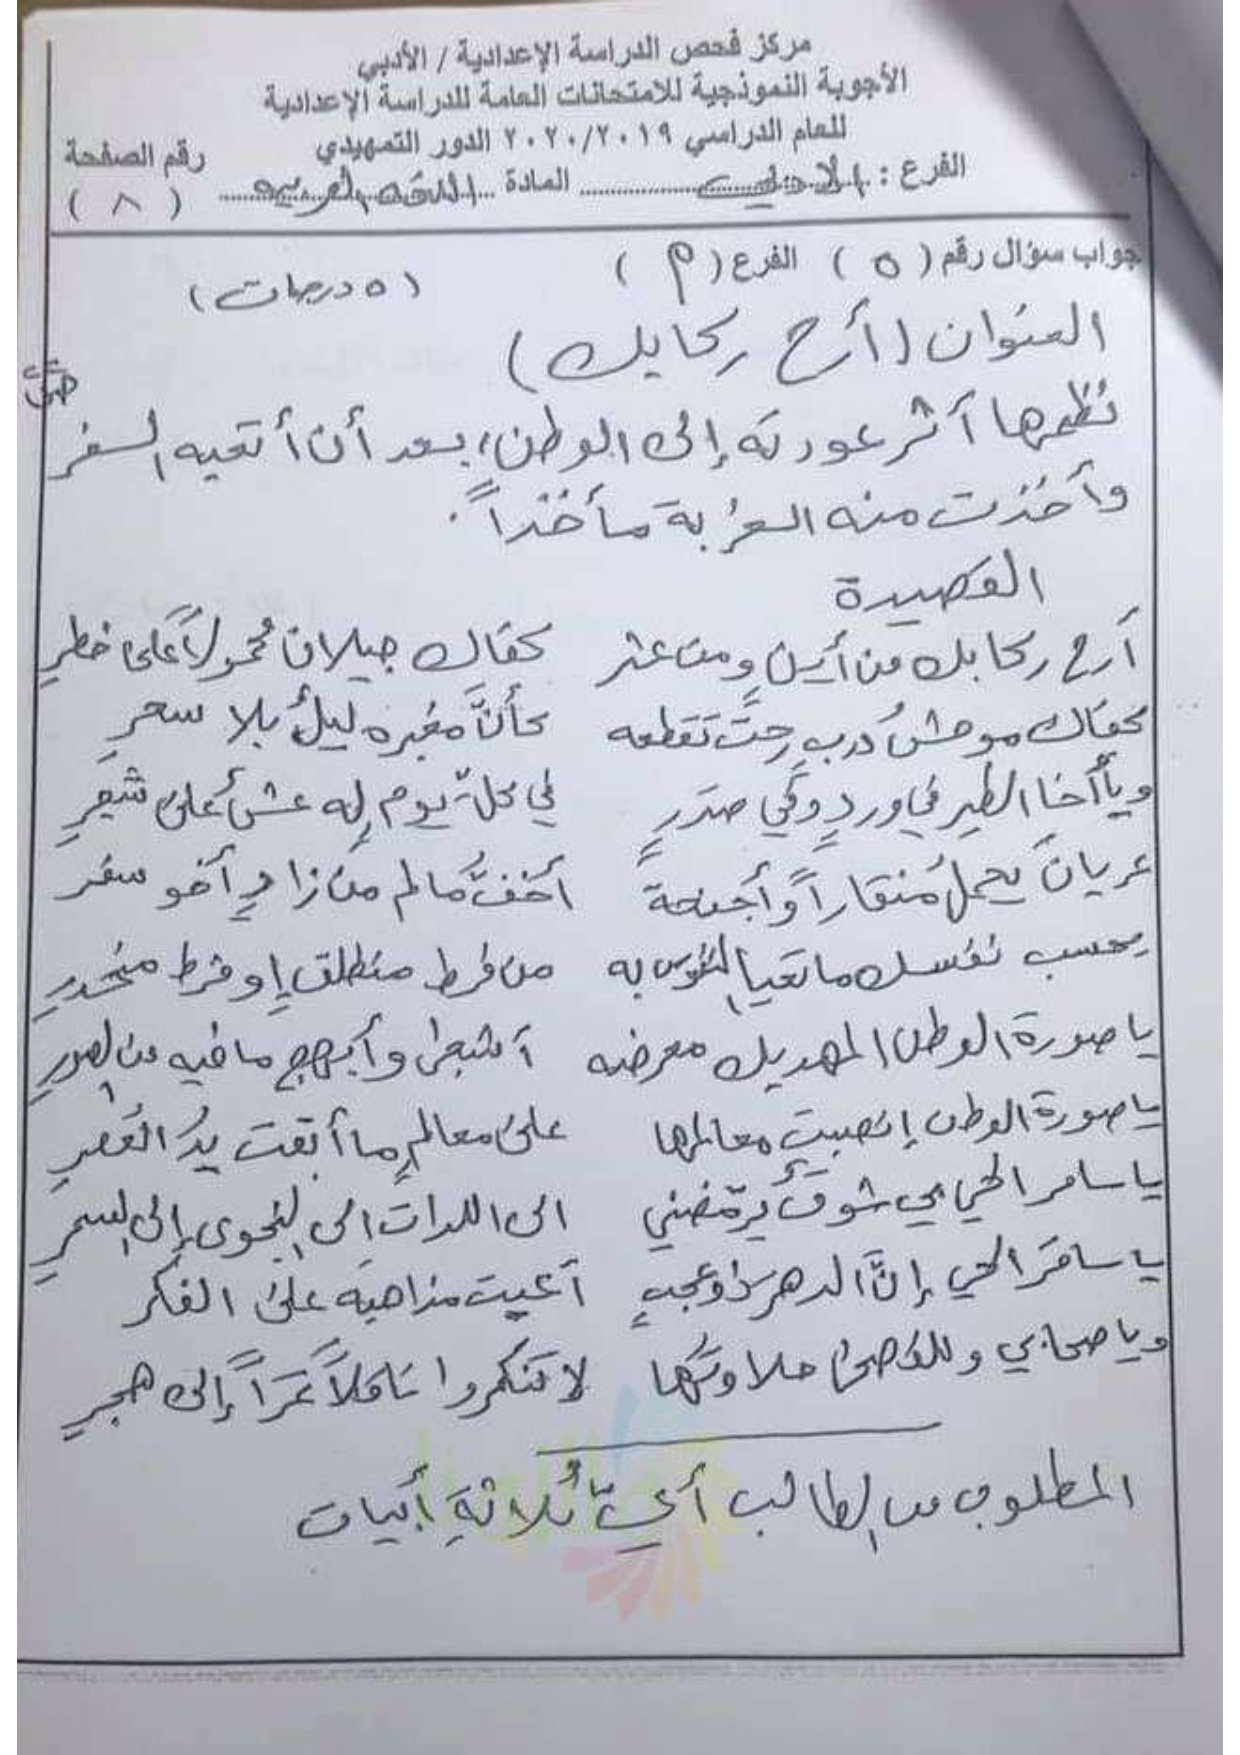 مركز فحص الدراسة الإعدادية / الأدبي
الأجوبة النموذجية للامتحانات العامة للدراسة الإعدادية
للعام الدراسي ٢٠٢٠/٢٠١٩ الدور التمهيدي
رقم الصفحة
الفرع : الادبي المادة اللغه العربيه
( ٨ )
جواب سؤال رقم ( ٥ ) الفرع ( م )
( ٥ درجات )
العنوان ( أرح ركابك )
نظمها أثر عودته إلى الوطن، بعد أن أتعبه السفر
وأخذت منه الغربة مأخذاً.
القصيدة
أرح ركابك من أين ومن عثر كفاك جيلان محمولاً على خطر
كفاك موحش درب رحت تقطعه كأنَّ مغبره ليلٌ بلا سحر
ويا أخا الطير في وردٍ وفي صدرٍ في كل يوم له عشٌ على شجرِ
عريان يحمل منقاراً وأجنحة أخف مالم من زادٍ أخو سفر
بحسب نفسك ما تعيا النفوس به من فرط منطلق او فرط منحدر
يا صورة الوطن المهديك معرضه أشجى وأبهج ما فيه من الصورِ
يا صورة الوطن معالمها على معالمٍ ما أبقت يدُ
يا سامر الحي بي شوقٌ يرمّضني الى اللدات إلى النجوى إلى السمرِ
يا سامر الحي إنَّ الدهر ذو عجبٍ أعيت مذاهبه على الفكر
ويا صحابي وللفصحى حلاوتها لا تنكروا ناقلاً تمراً إلى هجرِ
المطلوب من الطالب أيّ ثلاثة أبيات